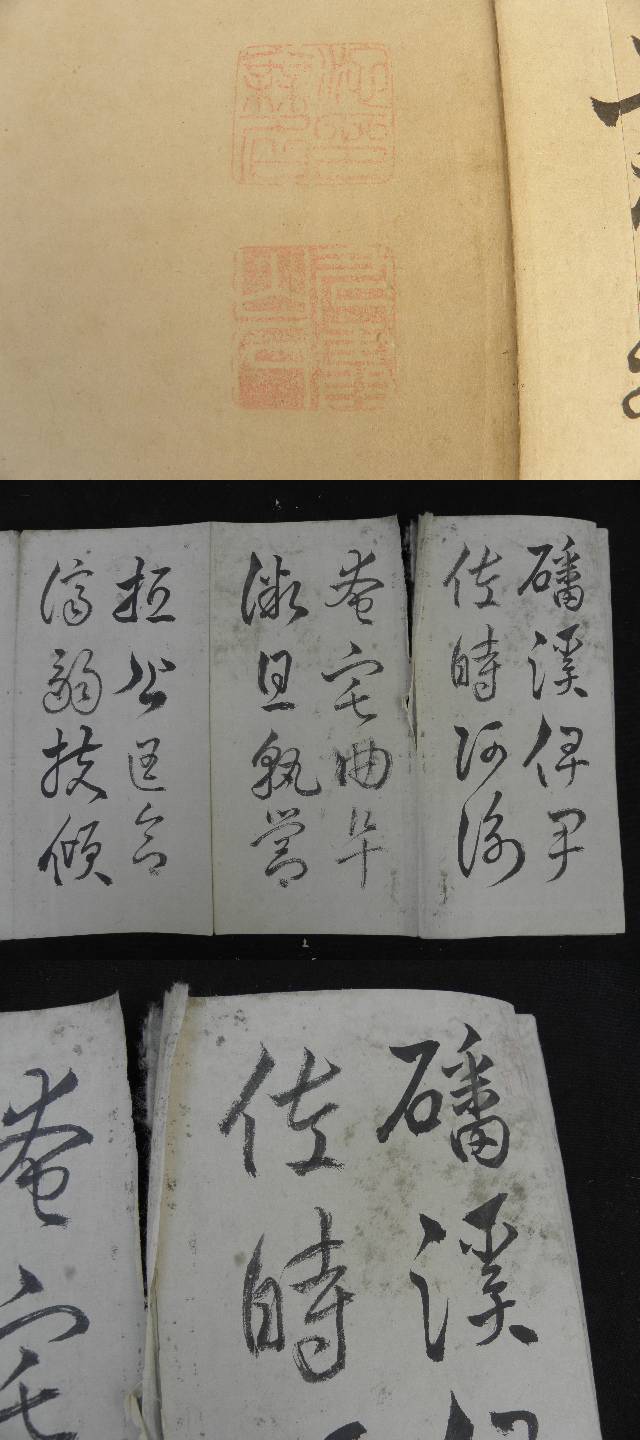 磻溪伊尹
佐時阿衡
奄宅曲阜
微旦孰營
桓公匡合
濟弱扶傾
磻溪
佐時
奄宅